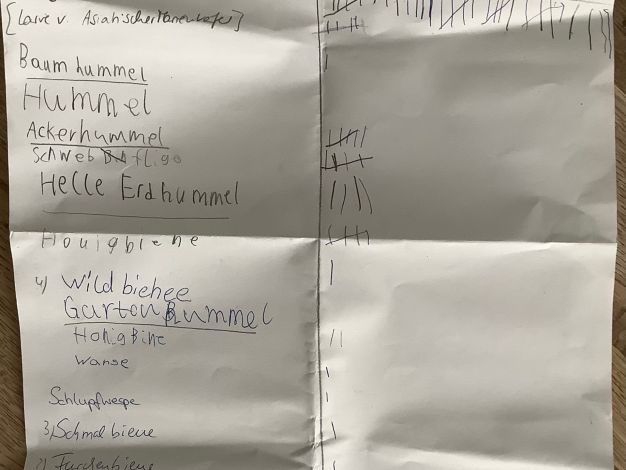 [Larve v. Asiatischer Marienkäfer]
Baumhummel
Hummel
Ackerhummel
Schwebflige
Helle Erdhummel
Honigbiene
4) Wildbiehee
Gartenhummel
HonigBine
Wanse
Schlupfwespe
3) Schmalbiene
2) Furchenbiene